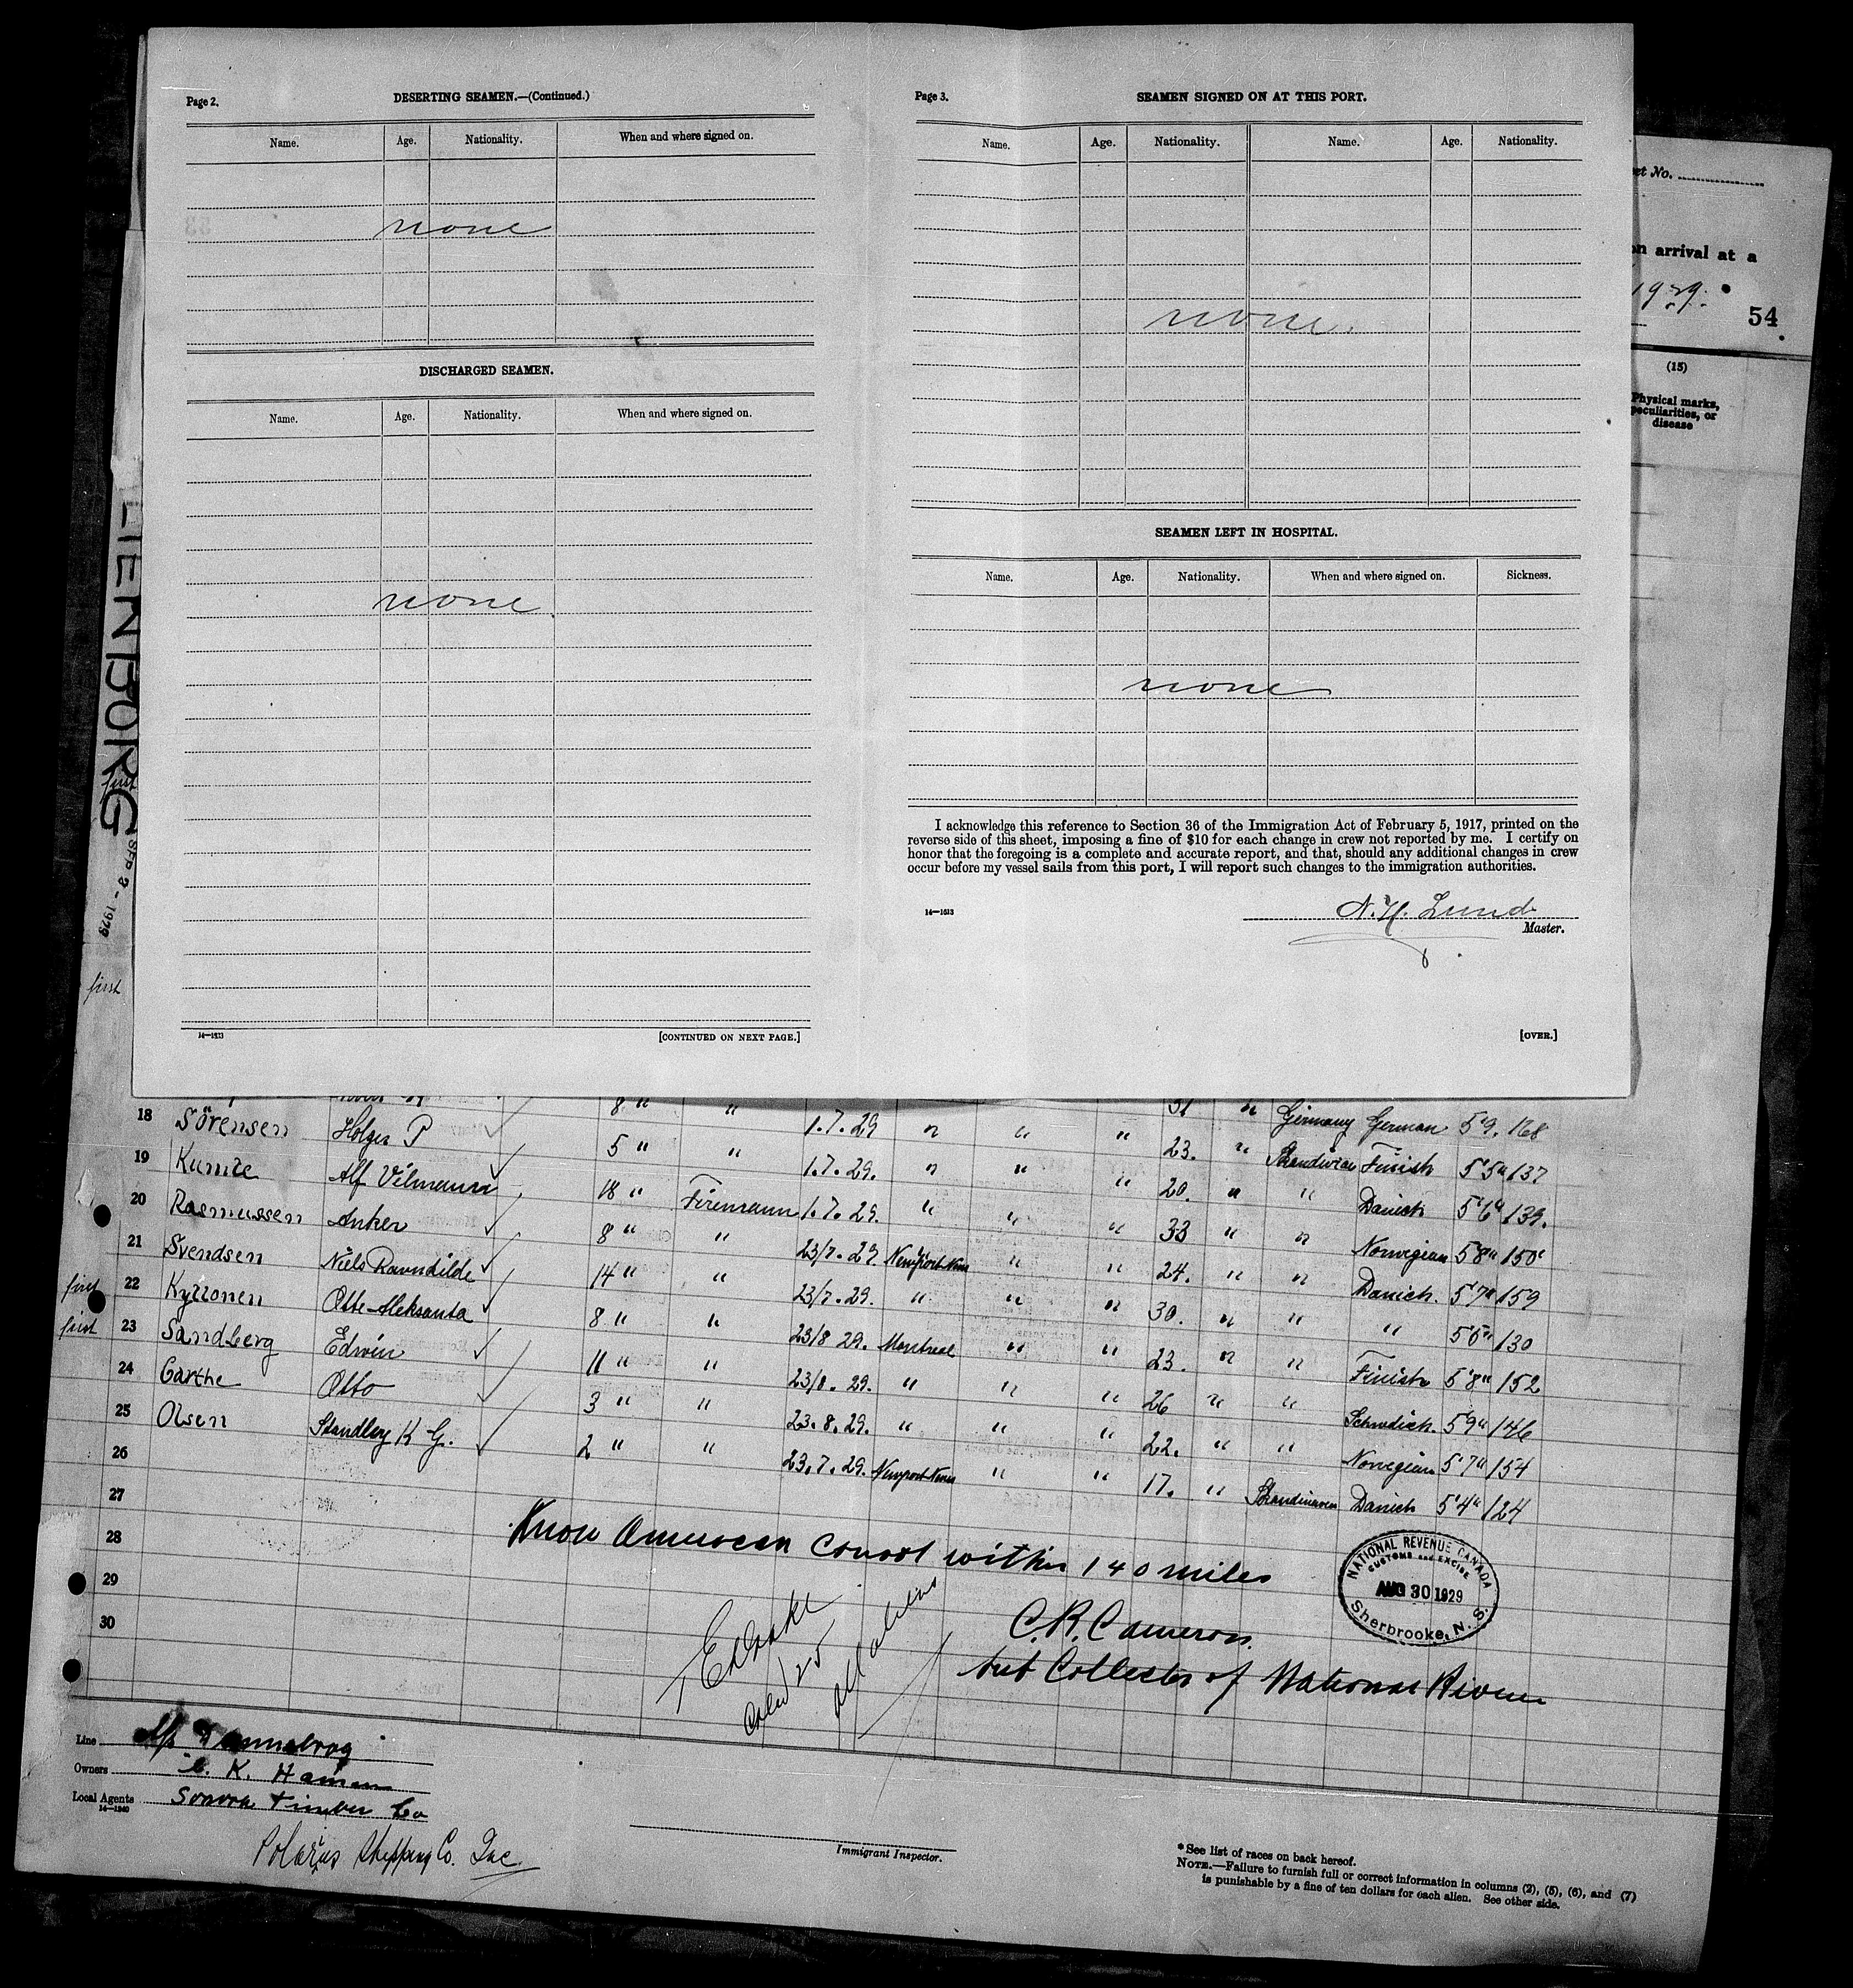 Page 2.
DESERTING SEAMEN.—(Continued.)
Name. Age. Nationality. When and where signed on.
none
DISCHARGED SEAMEN.
Name. Age. Nationality. When and where signed on.
none
14—1513
[CONTINUED ON NEXT PAGE.]
Page 3.
SEAMEN SIGNED ON AT THIS PORT.
Name. Age. Nationality. Name. Age. Nationality.
none.
SEAMEN LEFT IN HOSPITAL.
Name. Age. Nationality. When and where signed on. Sickness.
none
I acknowledge this reference to Section 36 of the Immigration Act of February 5, 1917, printed on the
reverse side of this sheet, imposing a fine of $10 for each change in crew not reported by me. I certify on
honor that the foregoing is a complete and accurate report, and that, should any additional changes in crew
occur before my vessel sails from this port, I will report such changes to the immigration authorities.
14—1513
N. H. Lund
Master.
[OVER.]
et No.
on arrival at a
1929.
54
(15)
Physical marks,
peculiarities, or
disease
first
SEP 3 - 1929
first
8 " " 1.7.29 " " " 31 " Germany German 5'9. 168
18 Sörensen Holger P 5 " " 1.7.29. " " " 23. " Skandivia Finish 5'5" 137
19 Kunze Alf Vilmann 18 " Firemann 1.7.29. " " " 20. " " Danich 5'6" 139.
20 Rasmussen Anker 8 " " 23/7.29 Newport News " " 33 " " Norwegian 5'8" 150
21 Svendsen Niels Ravnkilde 14 " " 23/7.29. " " " 24. " " Danich. 5'7" 159
first 22 Kyttonen Otto Aleksanta 8 " " 23/8 29. Montreal " " 30. " " " 5'6" 130
first 23 Sandberg Edwin 11 " " 23/8.29. " " " 23. " " Finish 5'8" 152
24 Garthe Otto 3 " " 23.8.29. " " " 26 " " Schwdich. 5'9" 146
25 Olsen Standley K G. 2 " " 23.7.29. Newport News " " 22. " " Norwegian 5'7" 154
26 17. " Skandinaven Danich 5'4" 124
27
28
29
30
Know American Consol within 140 miles
C. R. Cameron.
Sub Collector of National Rivenue
NATIONAL REVENUE CANADA
CUSTOMS and EXCISE
AUG 30 1929
Sherbrooke, N. S.
all aliens
Line M/s Danneborg
Owners K. Hansen
Local Agents Sonora Timber Co
14—1240
Polarus Shipping Co. Inc
Immigrant Inspector.
* See list of races on back hereof.
NOTE.—Failure to furnish full or correct information in columns (2), (5), (6), and (7)
is punishable by a fine of ten dollars for each alien. See other side.